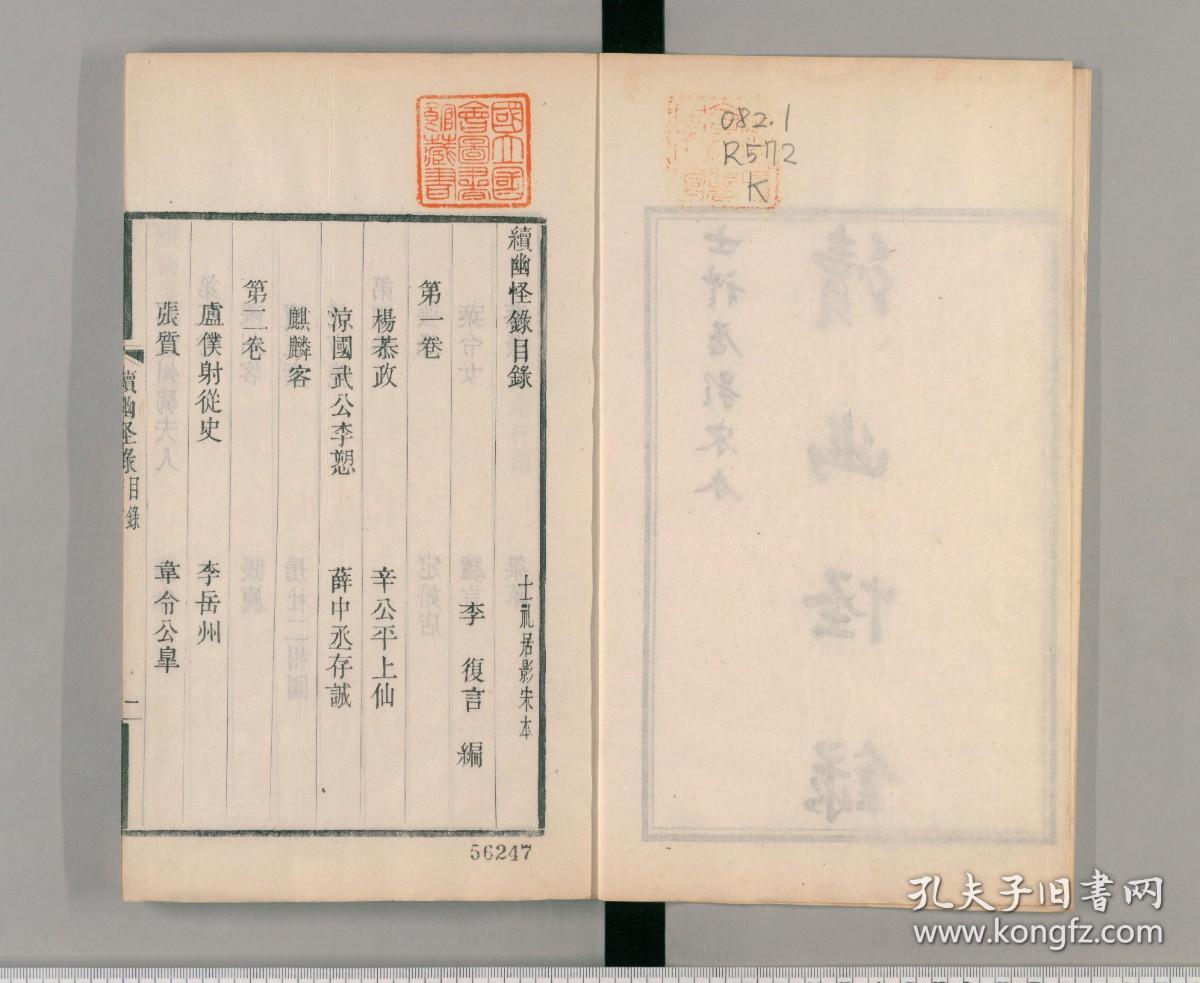 082.1
R572
K
國立國
會圖書
館藏書
續幽怪錄目錄
士礼居影宋本
李 復言 編
第一卷
楊恭政 辛公平上仙
涼國武公李愬 薛中丞存誠
麒麟客
第二卷
盧僕射從史 李岳州
張質 韋令公皐
續幽怪錄目錄
一
56247
孔夫子旧书网
www.kongfz.com